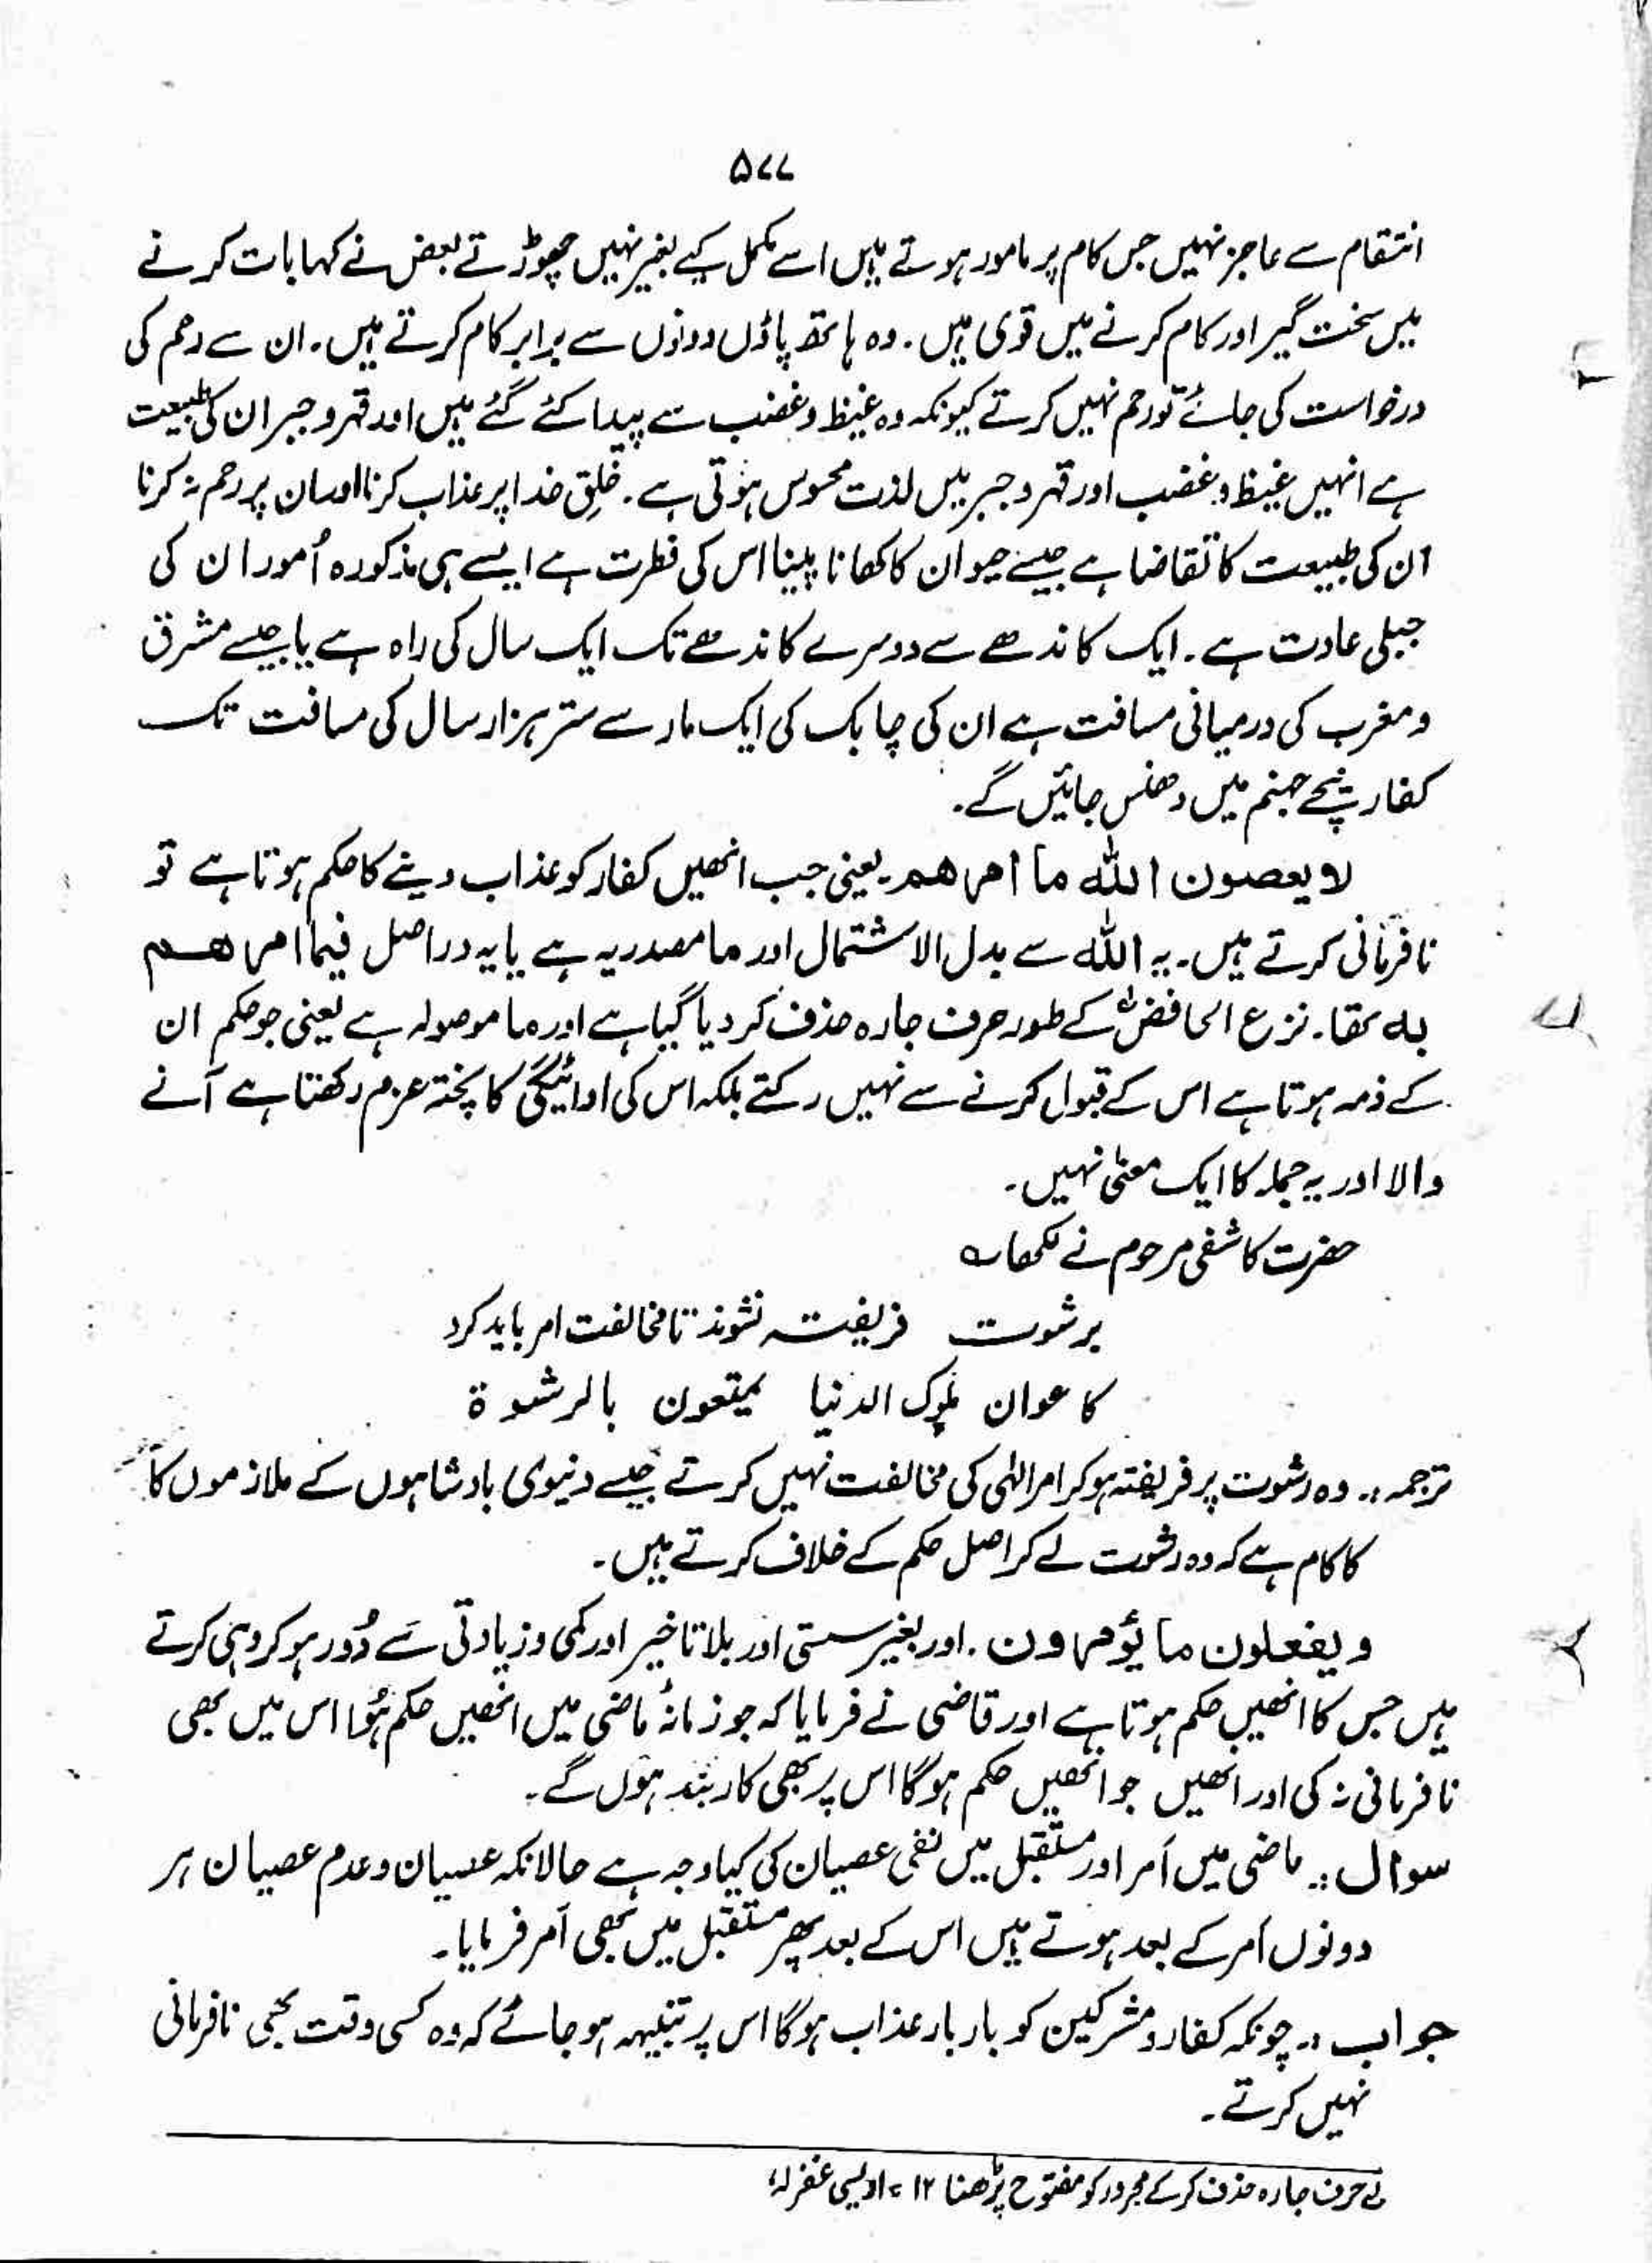 ۵۷۷
انتقام سے عاجز نہیں جس کام پر مامور ہوتے ہیں اسے مکمل کیے بغیر نہیں چھوڑتے بعض نے کہا بات کرنے
میں سخت گیر اور کام کرنے میں قوی ہیں۔ وہ ہاتھ پاؤں دونوں سے برابر کام کرتے ہیں۔ ان سے رحم کی
درخواست کی جائے تو رحم نہیں کرتے کیونکہ وہ غیظ وغضب سے پیدا کئے گئے ہیں اور قہر و جبر ان کی طبیعت
ہے انہیں غیظ و غضب اور قہر و جبر میں لذت محسوس ہوتی ہے۔ خلقِ خدا پر عذاب کرنا اور ان پر رحم نہ کرنا
ان کی طبیعت کا تقاضا ہے جیسے حیوان کا کھانا پینا اس کی فطرت ہے ایسے ہی مذکورہ اُمور ان کی
جبلی عادت ہے۔ ایک کاندھے سے دوسرے کاندھے تک ایک سال کی راہ ہے یا جیسے مشرق
و مغرب کی درمیانی مسافت ہے ان کی چابک کی ایک مار سے ستر ہزار سال کی مسافت تک
کفار نیچے جہنم میں دھنس جائیں گے۔
لا یعصون اللہ ما امرھم۔ یعنی جب انھیں کفار کو عذاب دینے کا حکم ہوتا ہے تو
نافرمانی کرتے ہیں۔ یہ اللہ سے بدل الاشتمال اور ما مصدریہ ہے یا یہ دراصل فیما امرھم
بہ تھا۔ نزع الخافض کے طور حرف جارہ حذف کر دیا گیا ہے اور ما موصولہ ہے یعنی جو حکم ان
کے ذمہ ہوتا ہے اس کے قبول کرنے سے نہیں رکتے بلکہ اس کی ادائیگی کا پختہ عزم رکھتا ہے آنے
والا اور یہ جملہ کا ایک معنیٰ نہیں۔
حضرت کاشفی مرحوم نے لکھا ؎
برشوت فریفتہ نشوند تا مخالفت امر باید کرد
کاعوان ملوک الدنیا یمتعون بالرشوة
ترجمہ :۔ وہ رشوت پر فریفتہ ہو کر امر الٰہی کی مخالفت نہیں کرتے جیسے دنیوی بادشاہوں کے ملازموں کا
کا کام ہے کہ وہ رشوت لے کر اصل حکم کے خلاف کرتے ہیں۔
و یفعلون ما یؤمرون۔ اور بغیر سستی اور بلا تاخیر اور کمی و زیادتی سے دُور ہو کر وہی کرتے
ہیں جس کا انھیں حکم ہوتا ہے اور قاضی نے فرمایا کہ جو زمانۂ ماضی میں انھیں حکم ہُوا اس میں بھی
نافرمانی نہ کی اور انھیں جو انھیں حکم ہو گا اس پر بھی کاربند ہوں گے۔
سوال :۔ ماضی میں اَمر اور مستقبل میں نفی عصیان کی کیا وجہ ہے حالانکہ عسیان و عدم عصیان ہر
دونوں اَمر کے بعد ہوتے ہیں اس کے بعد پھر مستقبل میں بھی اَمر فرمایا۔
جواب :۔ چونکہ کفار و مشرکین کو بار بار عذاب ہوگا اس پر تنبیہہ ہو جائے کہ وہ کسی وقت بھی نافرمانی
نہیں کرتے۔
حرف جارہ حذف کر کے مجرور کو مفتوح پڑھنا ۱۲ = اویسی غفرلہ؛